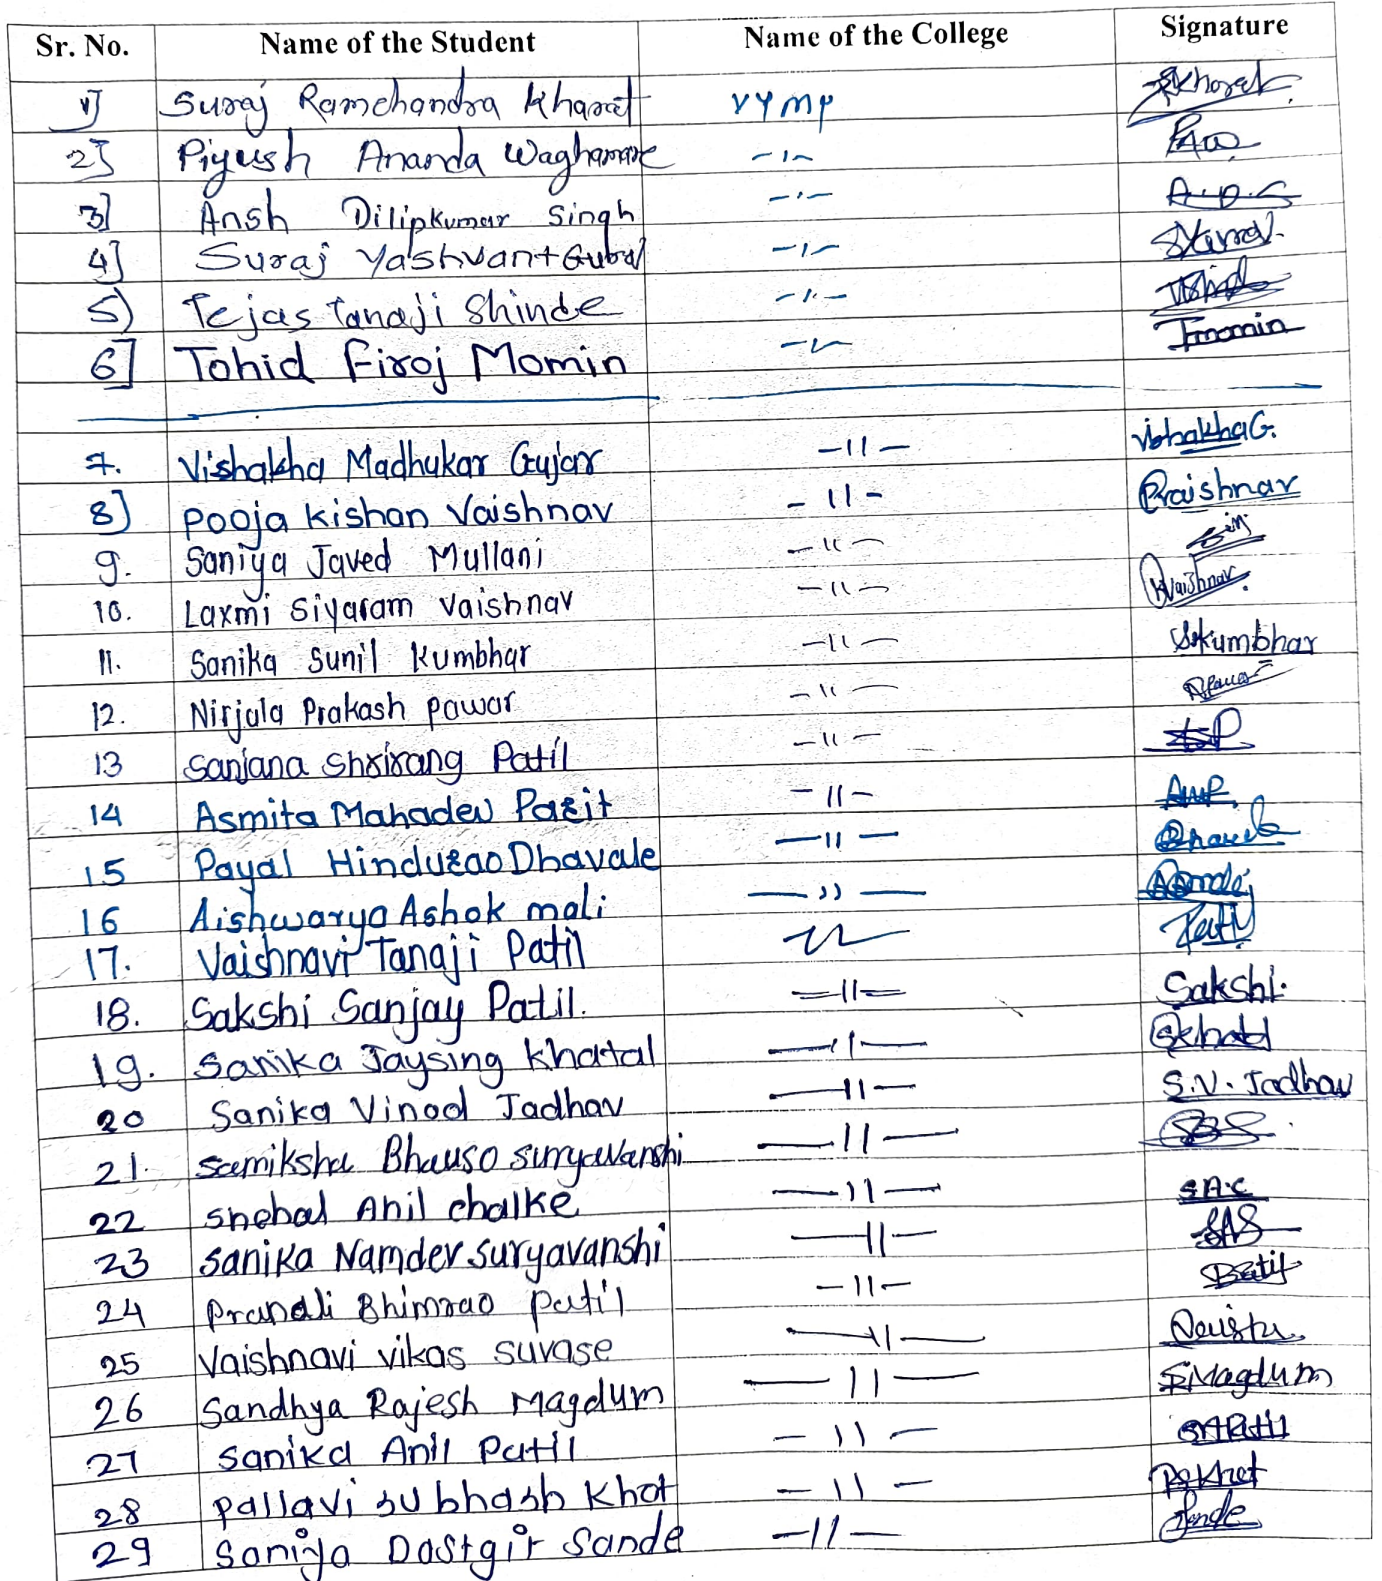 Sr. No. Name of the Student Name of the College Signature
1] Suraj Ramchandra Kharat VYMP
2] Piyush Ananda Waghamare -"-
3] Ansh Dilipkumar Singh -"-
4] Suraj Yashvant Gubal -"-
5) Tejas Tanaji Shinde -"-
6] Tohid Firoj Momin -"- Tmomin
7. Vishakha Madhukar Gujar -11- VishakhaG.
8] Pooja Kishan Vaishnav -11- Pvaishnav
9. Saniya Javed Mullani -11-
10. Laxmi Siyaram Vaishnav -11- Vaishnav.
11. Sanika Sunil Kumbhar -11- SKumbhar
12. Nirjala Prakash Pawar -11-
13 Sanjana Shrirang Patil -11-
14 Asmita Mahadev Pa 11-
15 Payal Hindurao Dhavale -11-
16 Aishwarya Ashok mali -11-
17. Vaishnavi Tanaji Patil
18. Sakshi Sanjay Patil. =11= Sakshi.
19. Sanika Jaysing Khatal -11-
20 Sanika Vinod Jadhav -11- S.V. Jadhav
21. Samiksha Bhauso suryavanshi -11-
22 Snehal Anil chalke -11- S.A.C
23 Sanika Namdev Suryavanshi -11- SAS
24 Pranali Bhimrao Patil -11-
25 Vaishnavi vikas suvase -11-
26 Sandhya Rajesh Magdum -11- SMagdum
27 Sanika Anil Patil -11- SAPatil
28 Pallavi Subhash Khot -11- PSKhot
29 Saniya Dastgir Sande -11- Sande